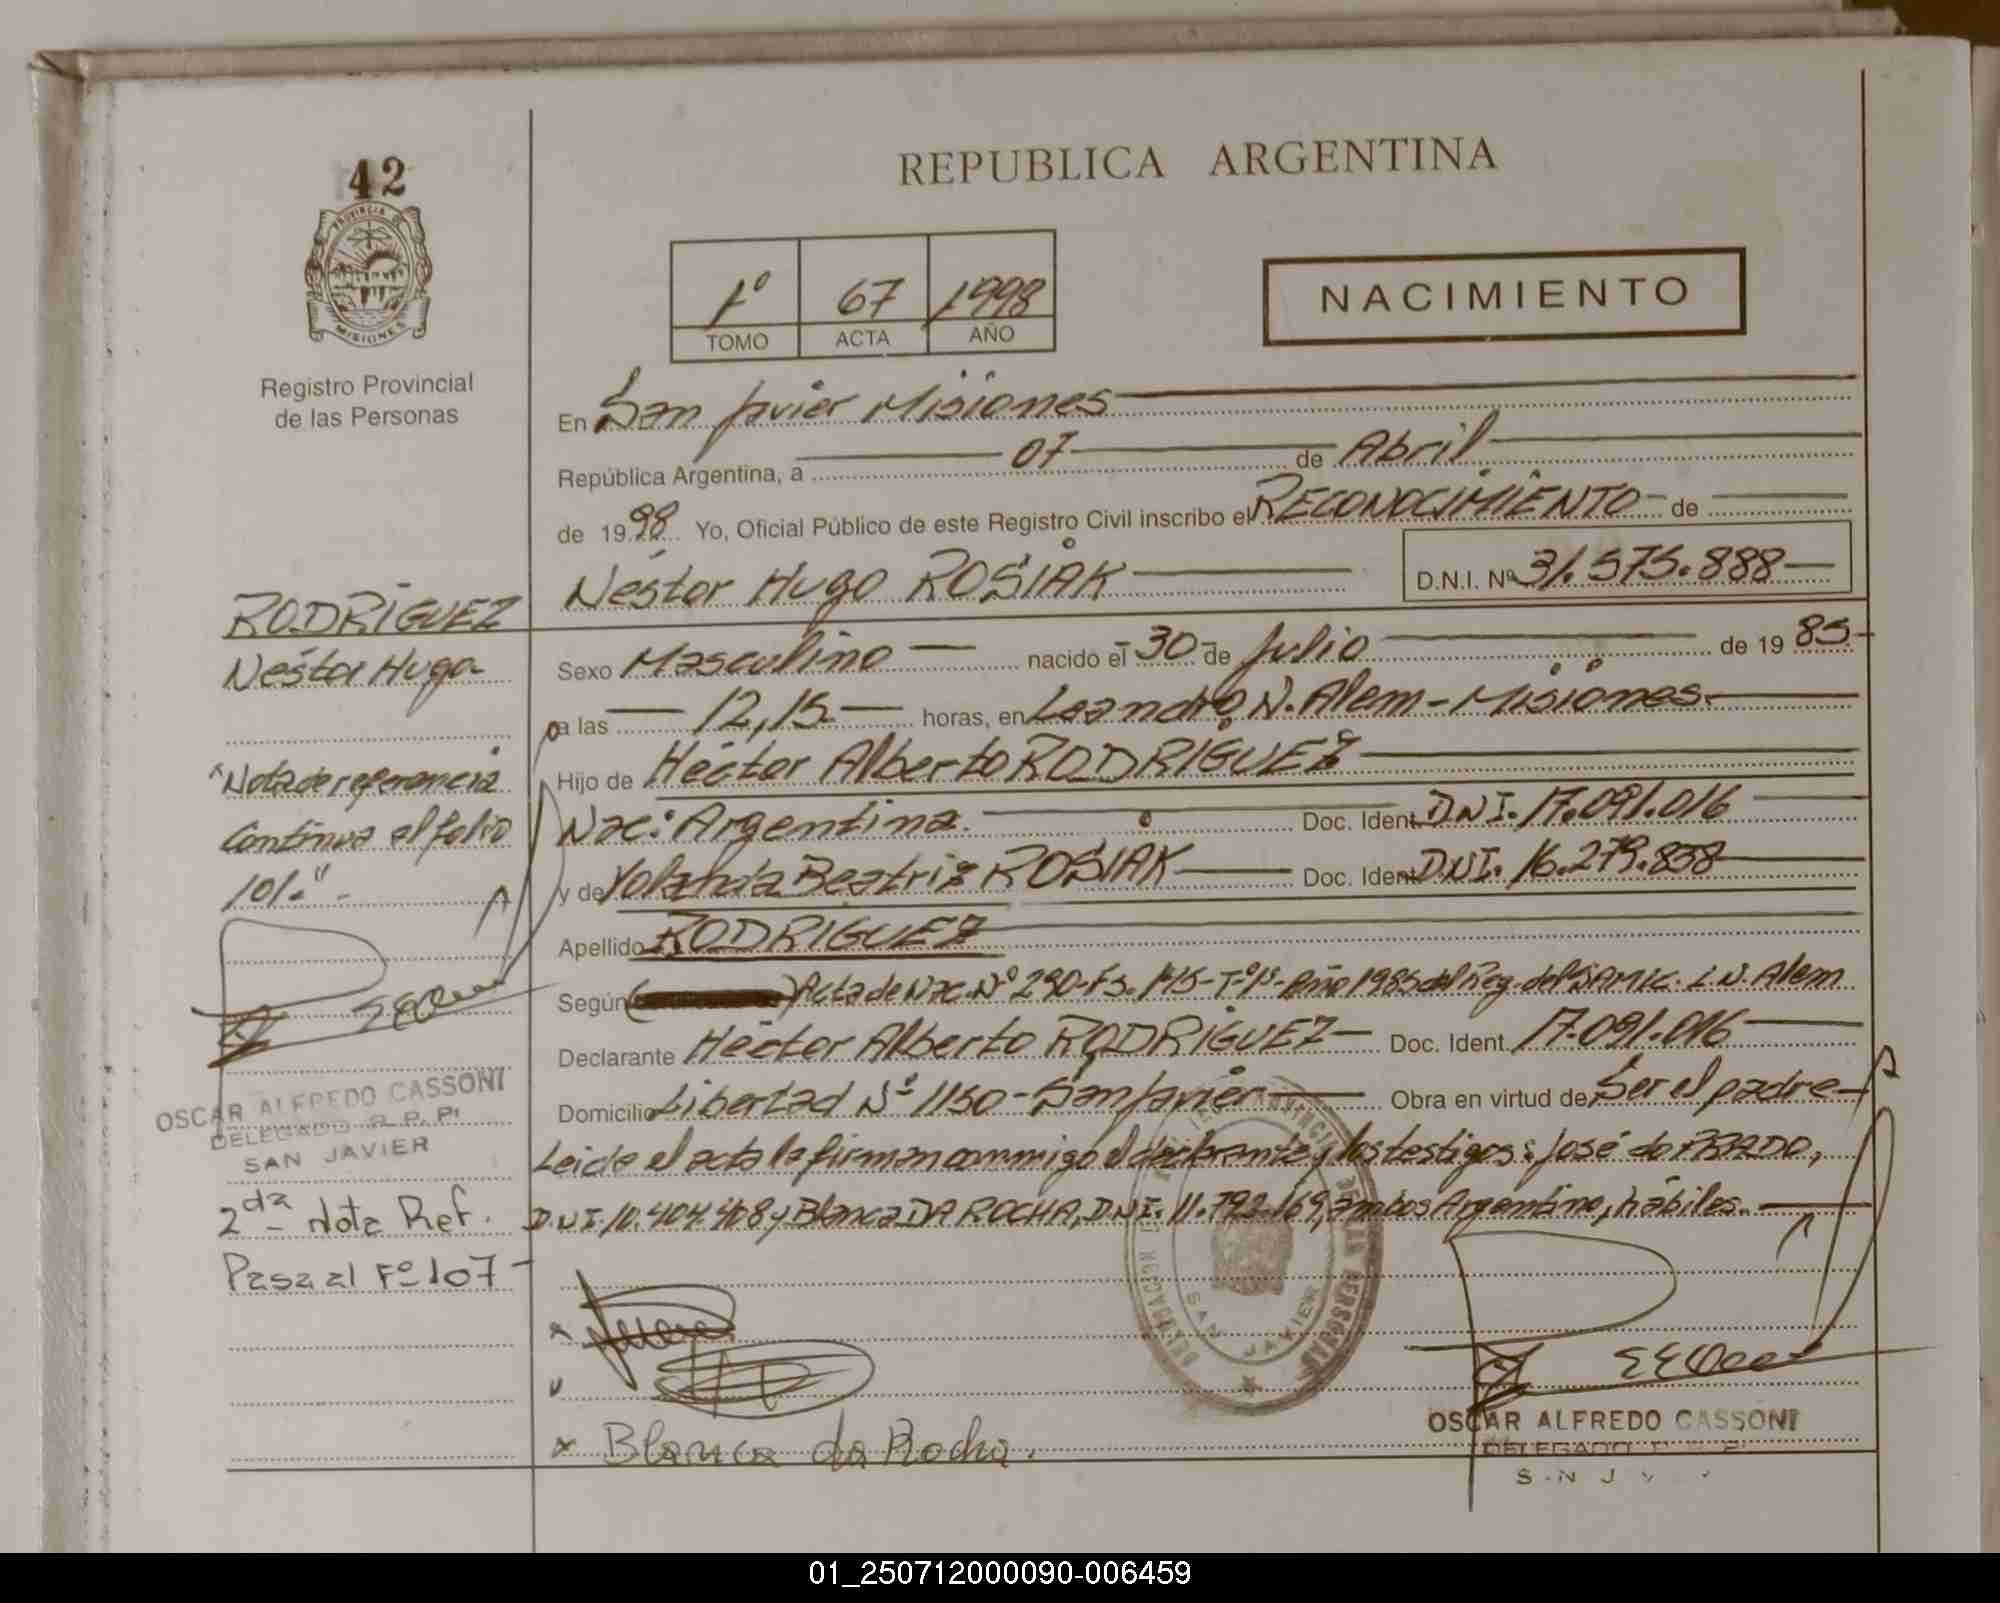 42
PROVINCIA DE
MISIONES
Registro Provincial
de las Personas
REPUBLICA ARGENTINA
1º 67 1998
TOMO ACTA AÑO
NACIMIENTO
En San Javier Misiones
República Argentina, a 07 de Abril
de 1998 Yo, Oficial Público de este Registro Civil inscribo el RECONOCIMIENTO de
Néstor Hugo ROSIAK D.N.I. Nº 31.575.888
Sexo Masculino nacido el 30 de Julio de 1985
a las 12,15 horas, en Leandro N. Alem - Misiones.
Hijo de Héctor Alberto RODRIGUEZ
Nac: Argentina. Doc. Ident. DNI. 17.091.016
y de Yolanda Beatriz ROSIAK Doc. Ident. DNI. 16.279.838
Apellido RODRIGUEZ
Según Acta de Nac. Nº 290 - Fs. 145 - Tº 1º - Año 1985 del Reg. del SAMIC. L. N. Alem
Declarante Héctor Alberto RODRIGUEZ Doc. Ident. 17.091.016
Domicilio Libertad Nº 1150 - San Javier Obra en virtud de Ser el padre
Leida el acta la firman conmigo el declarante y los testigos: José do PRADO,
D.N.I. 10.404.408 y Blanca DA ROCHA, D.N.I. 11.792.169, ambos Argentino, hábiles.
x Blanca da Rocha.
OSCAR ALFREDO CASSONI
DELEGADO
RODRIGUEZ
Néstor Hugo
"Nota de referencia
Continua al folio
101."-
OSCAR ALFREDO CASSONI
DELEGADO R. P. P.
SAN JAVIER
2da - Nota Ref.
Pasa al Fº 107 -
SAN JAVIER
01_250712000090-006459